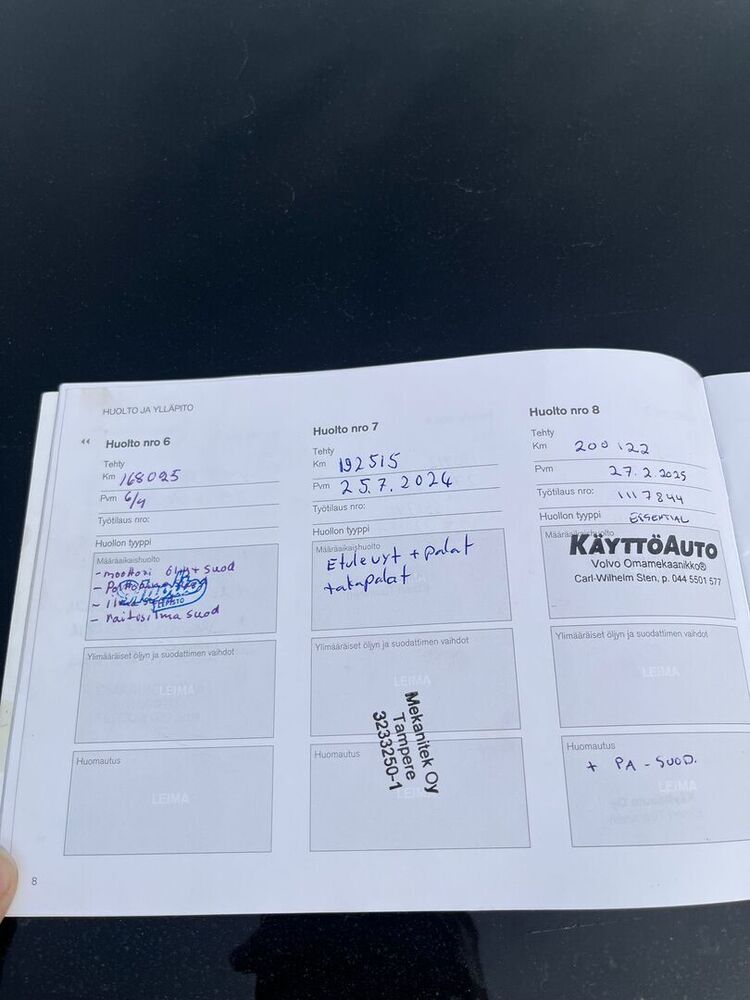 HUOLTO JA YLLÄPITO
Huolto nro 6
Tehty
Km 168095
Pvm 6/9
Työtilaus nro:
Huollon tyyppi
Määräaikaishuolto
- moottori öljy + suod
-
-
- raitisilma suod
Ylimääräiset öljyn ja suodattimen vaihdot
LEIMA
Huomautus
LEIMA
Huolto nro 7
Tehty
Km 192515
Pvm 25.7.2024
Työtilaus nro:
Huollon tyyppi
Määräaikaishuolto
Etulevyt + palat
takapalat
Ylimääräiset öljyn ja suodattimen vaihdot
LEIMA
Mekanitek Oy
Tampere
3233250-1
Huomautus
Huolto nro 8
Tehty
Km 200122
Pvm 27.2.2025
Työtilaus nro: 1117844
Huollon tyyppi ESSENTIAL
Määräaikaishuolto
KÄYTTÖAUTO
Volvo Omamekaanikko®
Carl-Wilhelm Sten, p. 044 5501 577
Ylimääräiset öljyn ja suodattimen vaihdot
LEIMA
Huomautus
+ PA-SUOD.
LEIMA
8